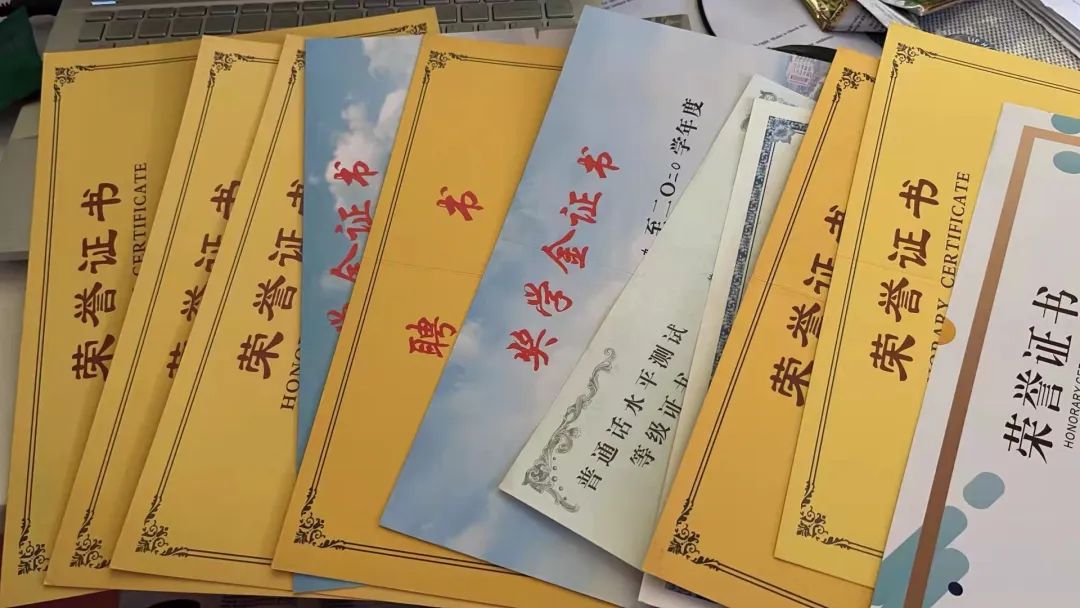 荣誉证书
CERTIFICATE
荣誉证
荣誉证
HONO
金证书
聘书
奖学金证书
至二〇二0学年度
普通话水平测试
等级证书
荣誉证书
荣誉证书
ORARY CERTIFICATE
荣誉证书
HONORARY CER